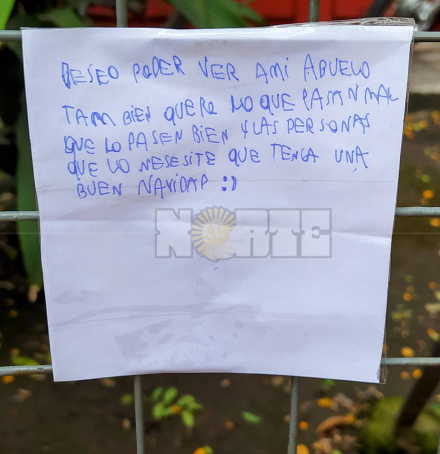 DESEO PODER VER AMI ABUELO
TAMBIEN QUERO LO QUE PASAN MAL
QUE LO PASEN BIEN Y LAS PERSONAS
QUE LO NESESITE QUE TENGA UNA
BUEN NAVIDAD :)
NORTE